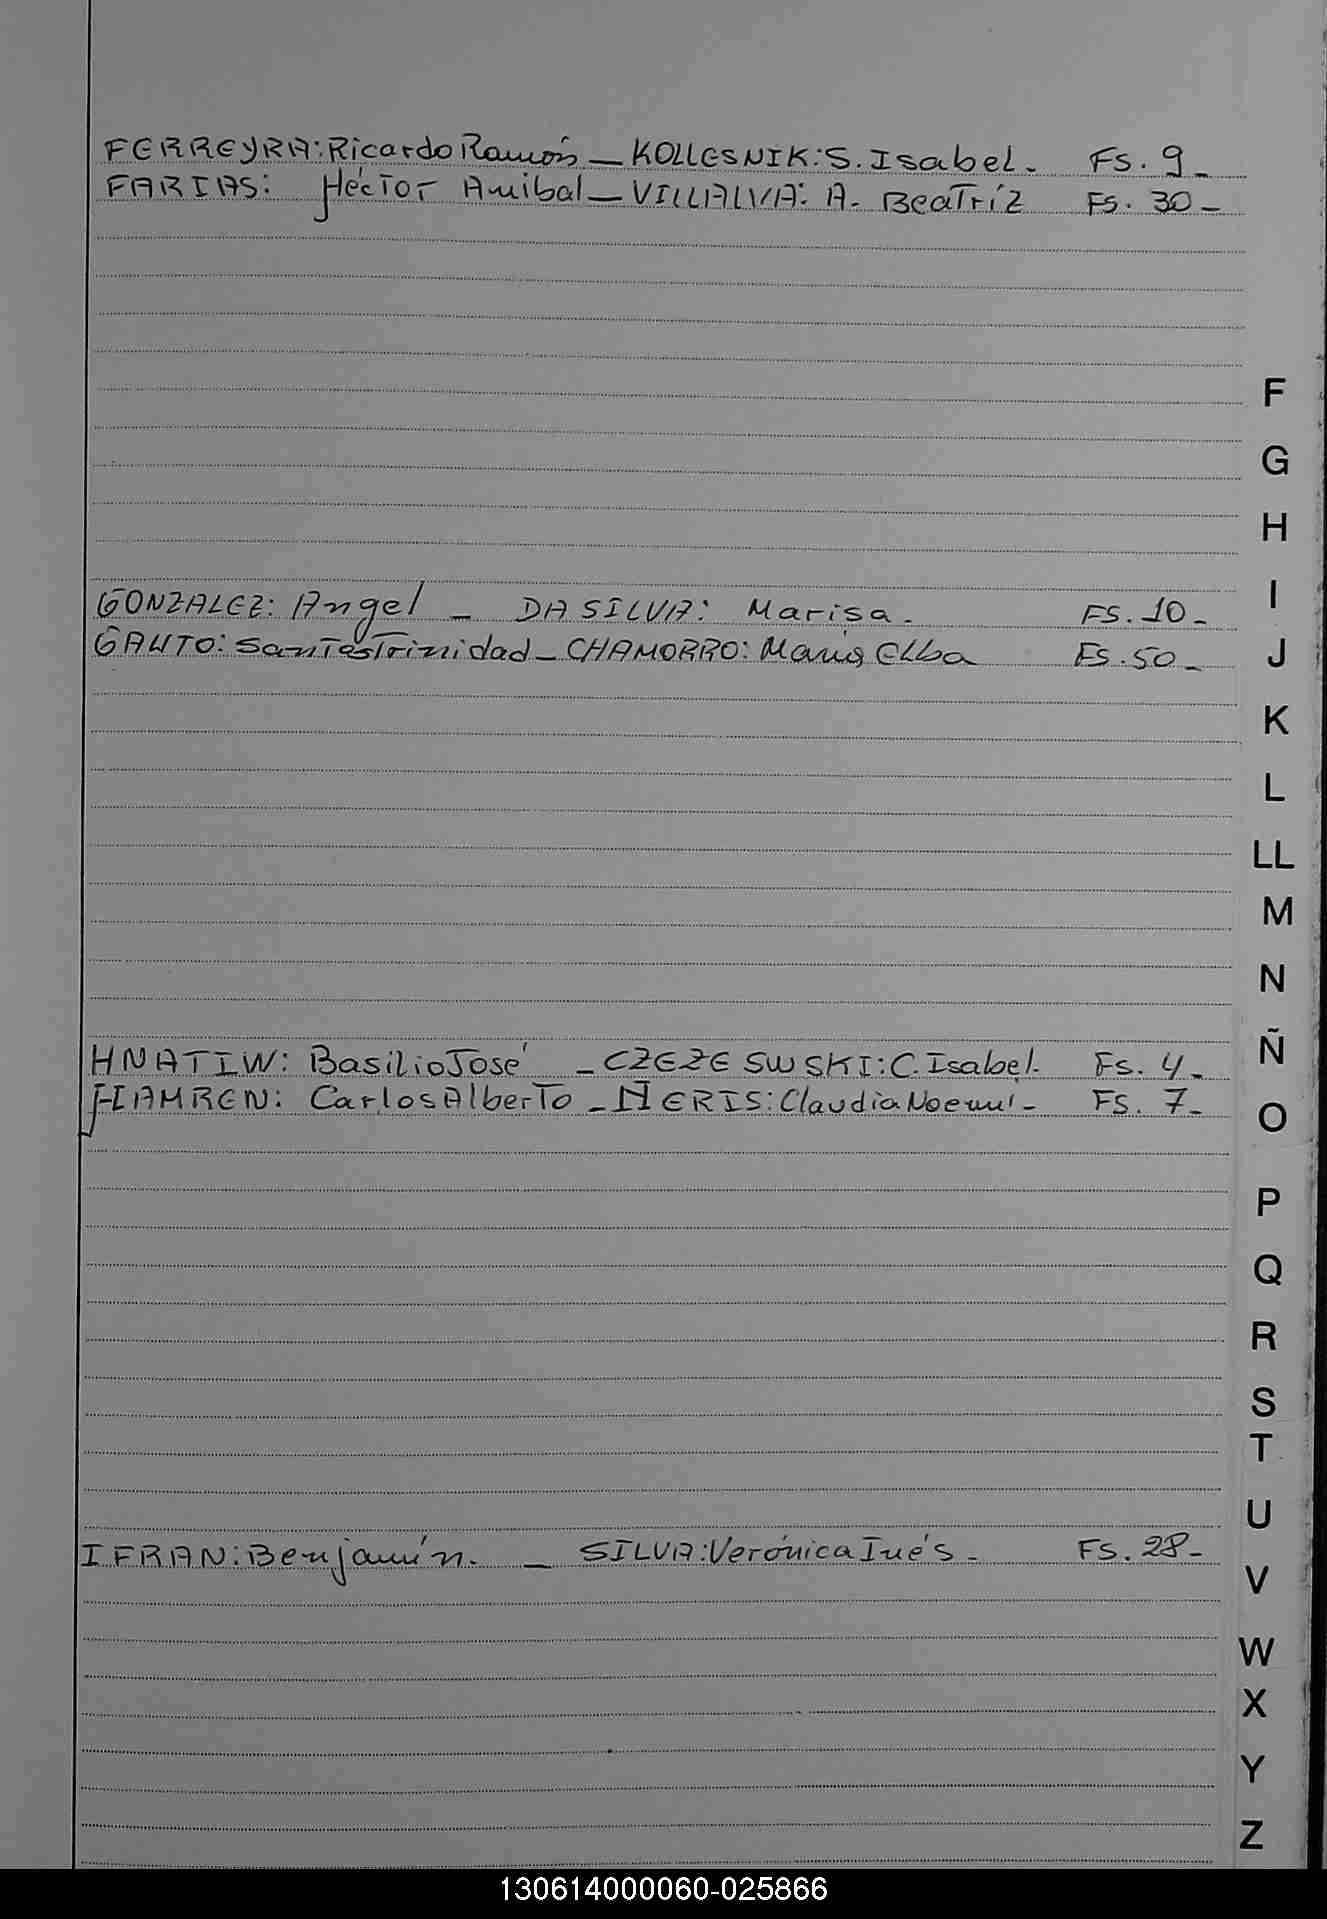 FERREYRA: Ricardo Ramón — KOLLESNIK: S. Isabel. Fs. 9_
FARIAS: Héctor Anibal — VILLALVA: A. Beatríz Fs. 30_
F
G
H
I
GONZALEZ: Angel _ DA SILVA: Marisa. FS. 10_
GAUTO: Santos Trinidad _ CHAMORRO: María Elba FS. 50_
J
K
L
LL
M
N
Ñ
HNATIW: Basilio José _ CZEZESWSKI: C. Isabel. Fs. 4_
HAMREN: Carlos Alberto _ ÑERIS: Claudia Noemí _ FS. 7_
O
P
Q
R
S
T
U
IFRAN: Benjamín. _ SILVA: Verónica Inés _ FS. 28_
V
W
X
Y
Z
130614000060-025866